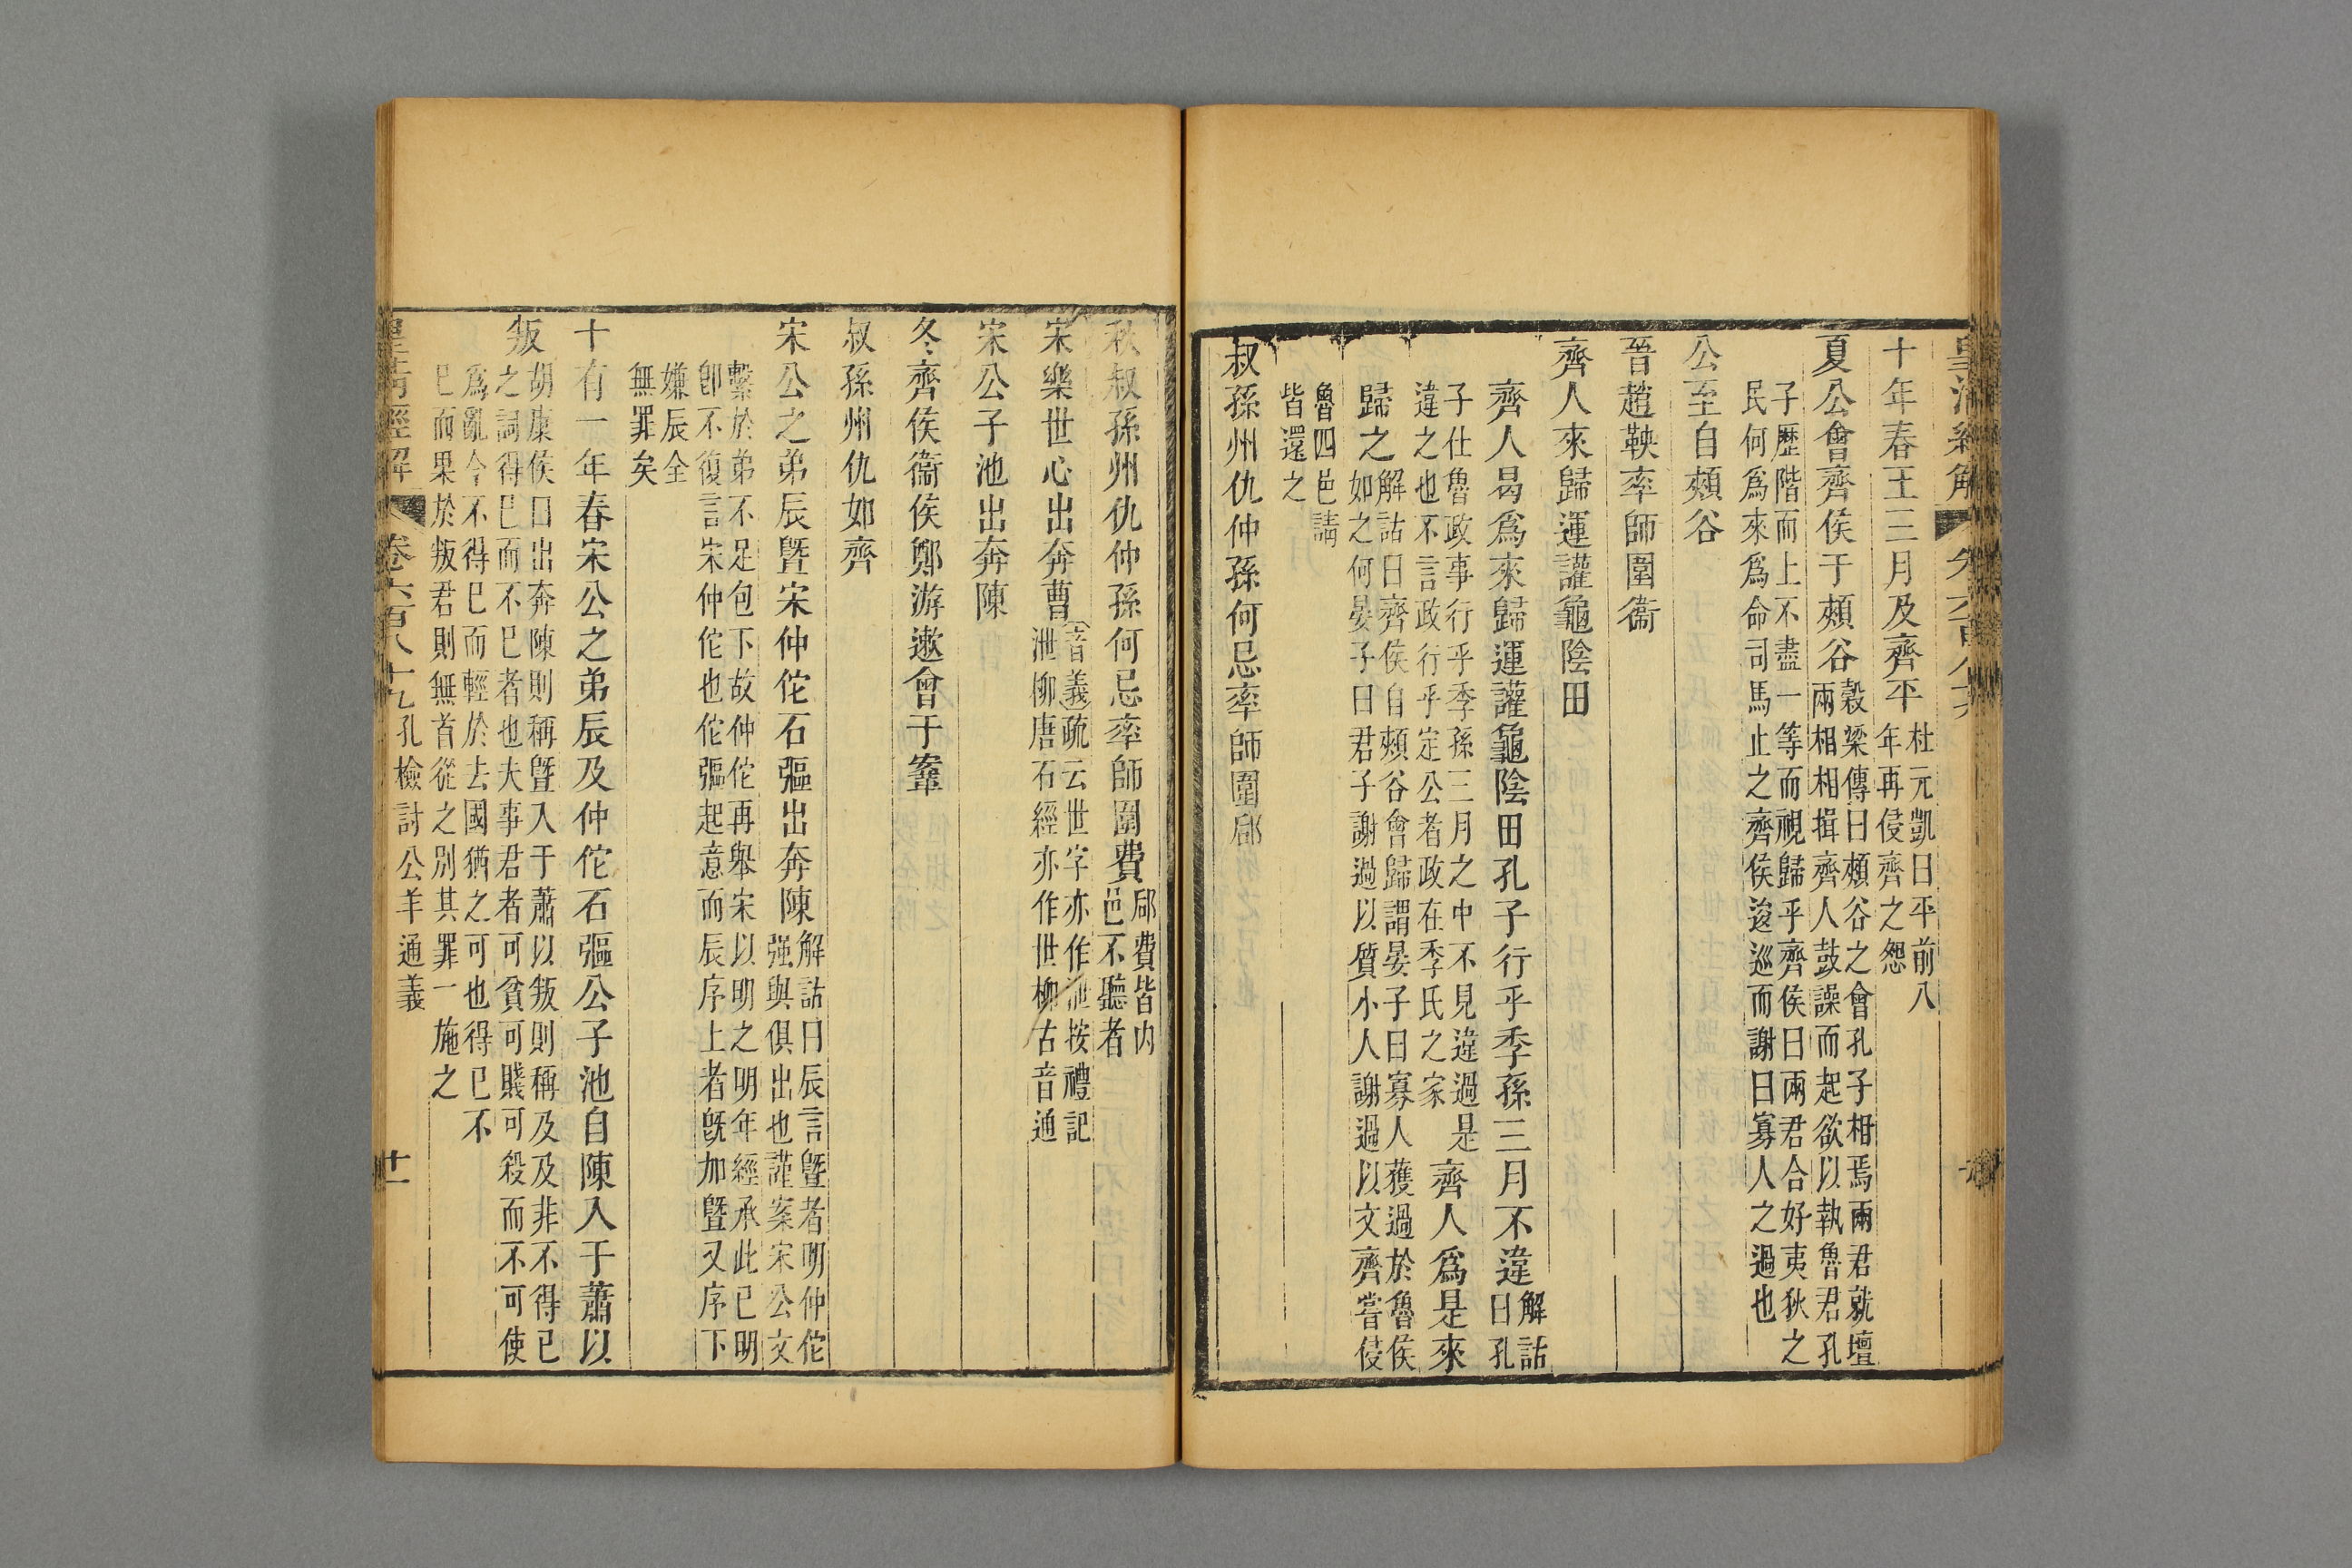 皇清經解
十年春王三月及齊平
杜元凱曰平前八
年再侵齊之怨
夏公會齊侯于頰谷
穀梁傳曰頰谷之會孔子相焉兩君就壇
兩相相揖齊人鼓譟而起欲以執魯君孔
子歷階而上不盡一等而視歸乎齊侯曰兩君合好夷狄之
民何爲來爲命司馬止之齊侯逡巡而謝曰寡人之過也
公至自頰谷
晉趙鞅率師圍衞
齊人來歸運讙龜陰田
齊人曷爲來歸運讙龜陰田孔子行乎季孫三月不違
解詁
曰孔
子仕魯政事行乎季孫三月之中不見違過是
違之也不言政行乎定公者政在季氏之家
齊人爲是來
歸之
解詁曰齊侯自頰谷會歸謂晏子曰寡人獲過於魯侯
如之何晏子曰君子謝過以質小人謝過以文齊嘗侵
魯四邑請
皆還之
叔孫州仇仲孫何忌率師圍郈
秋叔孫州仇仲孫何忌率師圍費
郈費皆内
邑不聽者
宋樂世心出奔曹
音義疏云世字亦作泄按禮記
泄柳唐石經亦作世柳古音通
宋公子池出奔陳
冬齊侯衞侯鄭游遬會于鞌
叔孫州仇如齊
宋公之弟辰曁宋仲佗石彄出奔陳
解詁曰辰言曁者明仲佗
强與俱出也謹案宋公文
繫於弟不足包下故仲佗再舉宋以明之明年經承此已明
卽不復言宋仲佗也佗彄起意而辰序上者旣加曁又序下
嫌辰全
無罪矣
十有一年春宋公之弟辰及仲佗石彄公子池自陳入于蕭以
叛
胡康侯曰出奔陳則稱曁入于蕭以叛則稱及及非不得已
之詞得已而不已者也夫事君者可貧可賤可殺而不可使
爲亂今不得已而輕於去國猶之可也得已不
已而果於叛君則無首從之別其罪一施之
皇淸經解
卷六百八十九
孔檢討公羊通義
十一